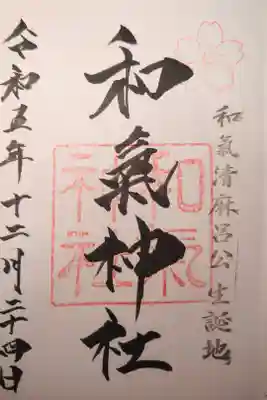 和氣清麻呂公生誕地
和氣神社
令和五年十二月二十四日
和氣
神社